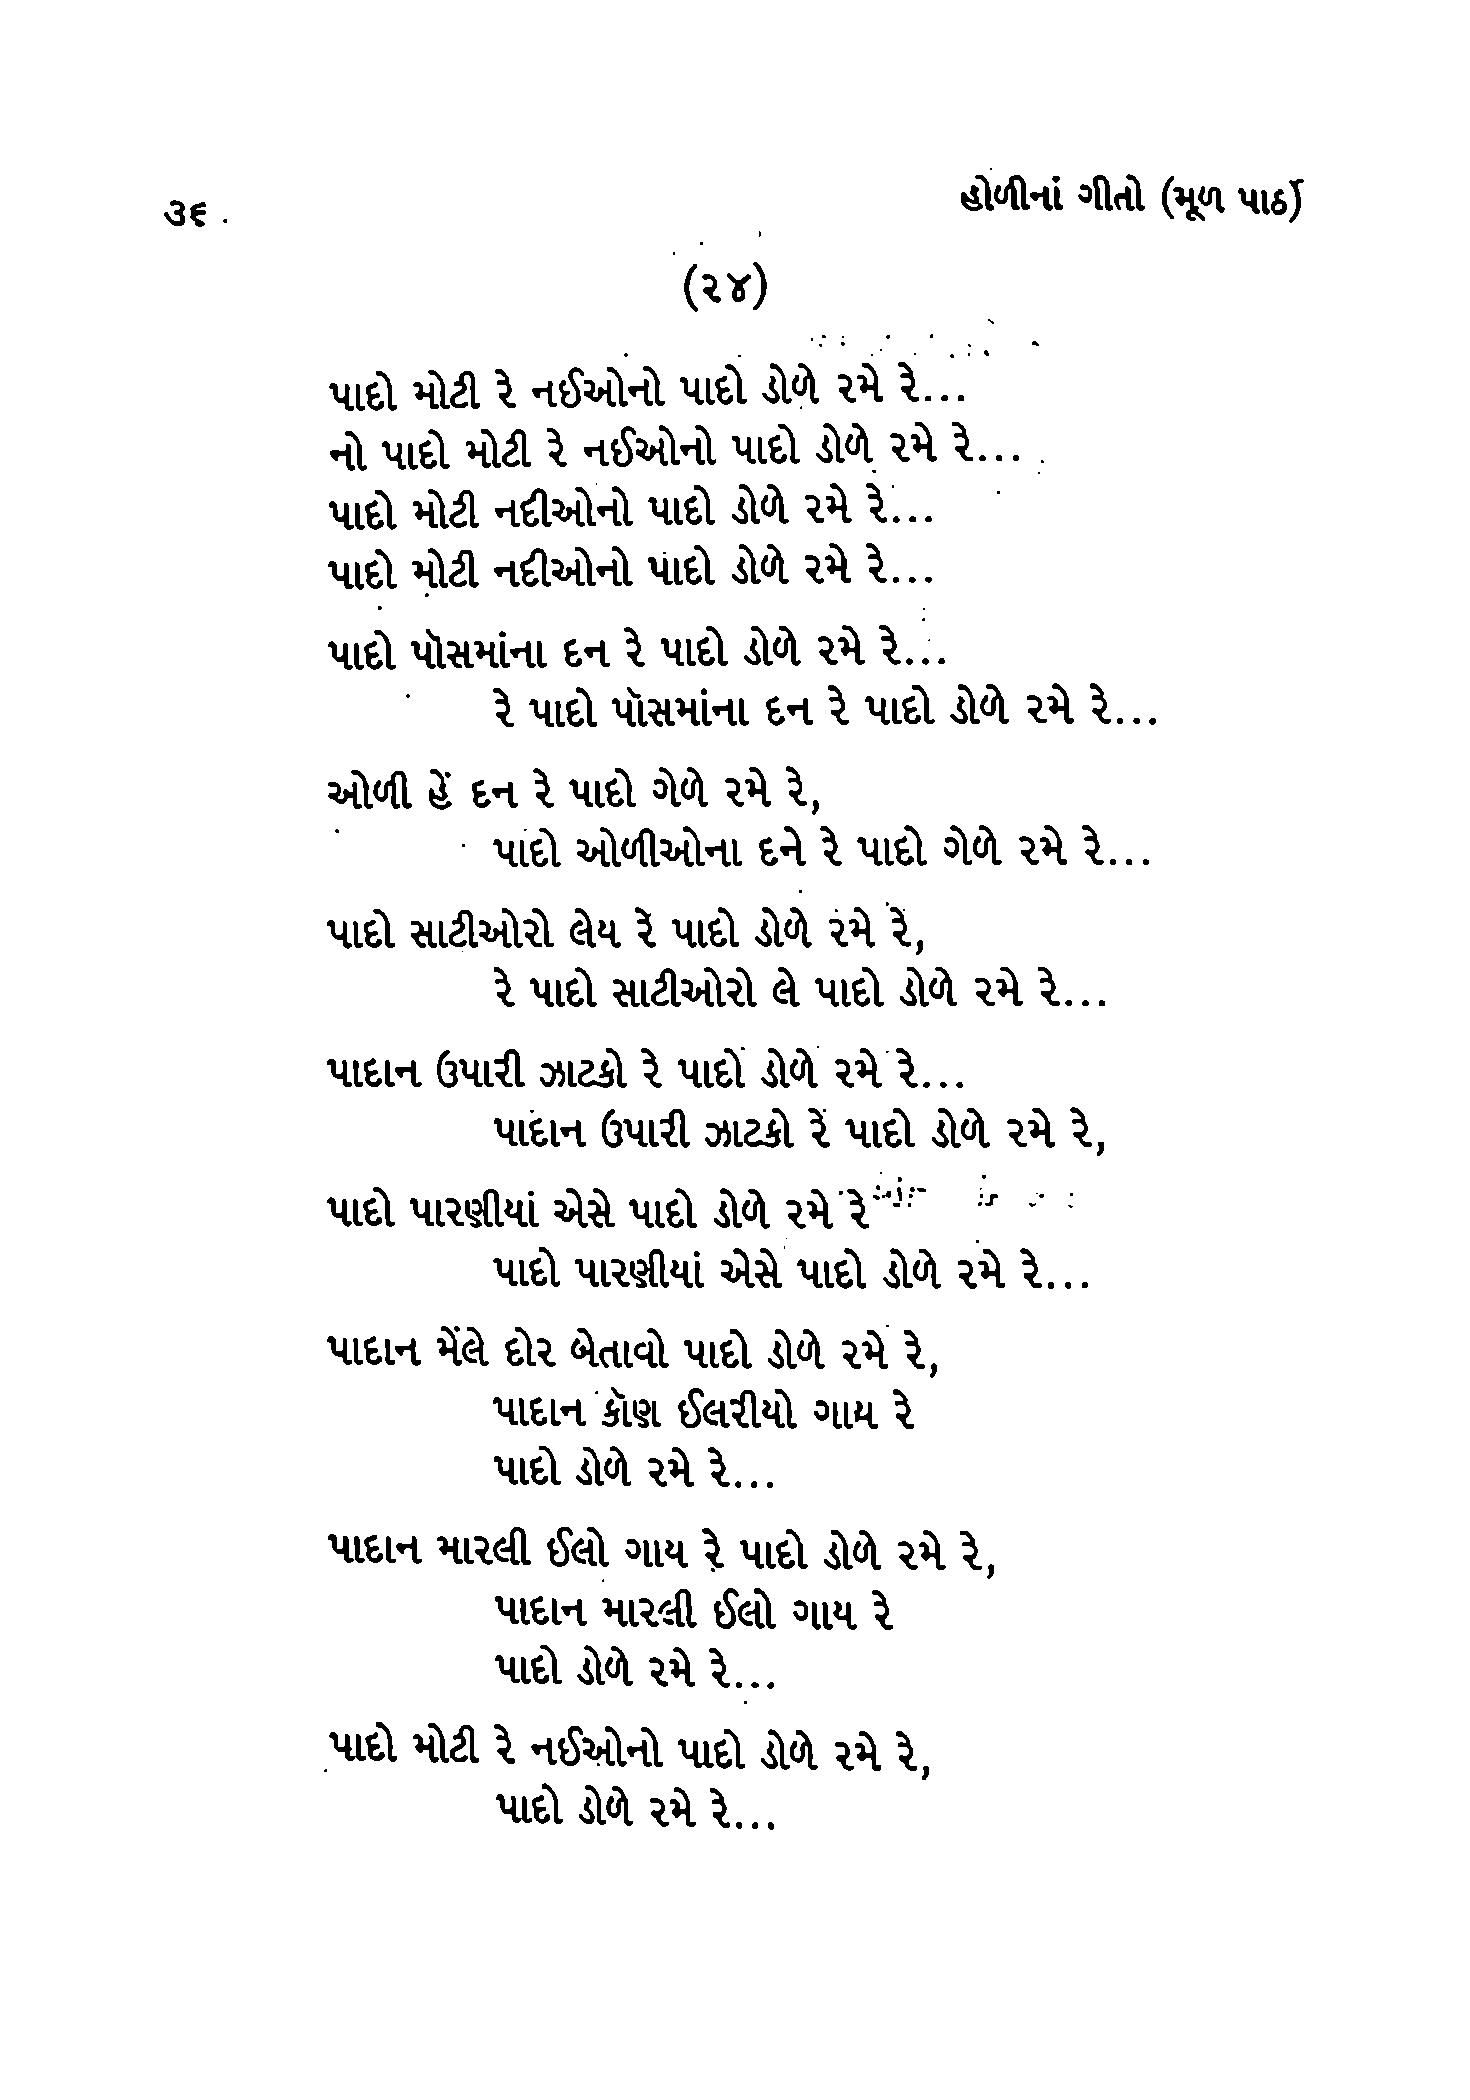 ૩૬
હોળીનાં ગીતો (મૂળ પાઠ)
(૨૪)
પાદો મોટી રે નઈઓનો પાદો ડોળે રમે રે...
નો પાદો મોટી રે નઈઓનો પાદો ડોળે રમે રે...
પાદો મોટી નદીઓનો પાદો ડોળે રમે રે...
પાદો મોટી નદીઓનો પાદો ડોળે રમે રે...
પાદો પૉસમાંના દન રે પાદો ડોળે રમે રે...
રે પાદો પૉસમાંના દન રે પાદો ડોળે રમે રે...
ઓળી હેં દન રે પાદો ગેળે રમે રે,
પાદો ઓળીઓના દને રે પાદો ગેળે રમે રે...
પાદો સાટીઓરો લેય રેં પાદો ડોળે રમે રે,
રે પાદો સાટીઓરો લે પાદો ડોળે રમે રે...
પાદાન ઉપારી ઝાટકો રે પાદો ડોળે રમે રે...
પાદાન ઉપારી ઝાટકો રેં પાદો ડોળે રમે રે,
પાદો પારણીયાં એસે પાદો ડોળે રમે રે
પાદો પારણીયાં એસે પાદો ડોળે રમે રે...
પાદાન મેંલે દોર બેતાવો પાદો ડોળે રમે રે,
પાદાન કૉણ ઈલરીયો ગાય રે
પાદો ડોળે રમે રે...
પાદાન મારલી ઈલો ગાય રે પાદો ડોળે રમે રે,
પાદાન મારલી ઈલો ગાય રે
પાદો ડોળે રમે રે...
પાદો મોટી રે નઈઓનો પાદો ડોળે રમે રે,
પાદો ડોળે રમે રે...